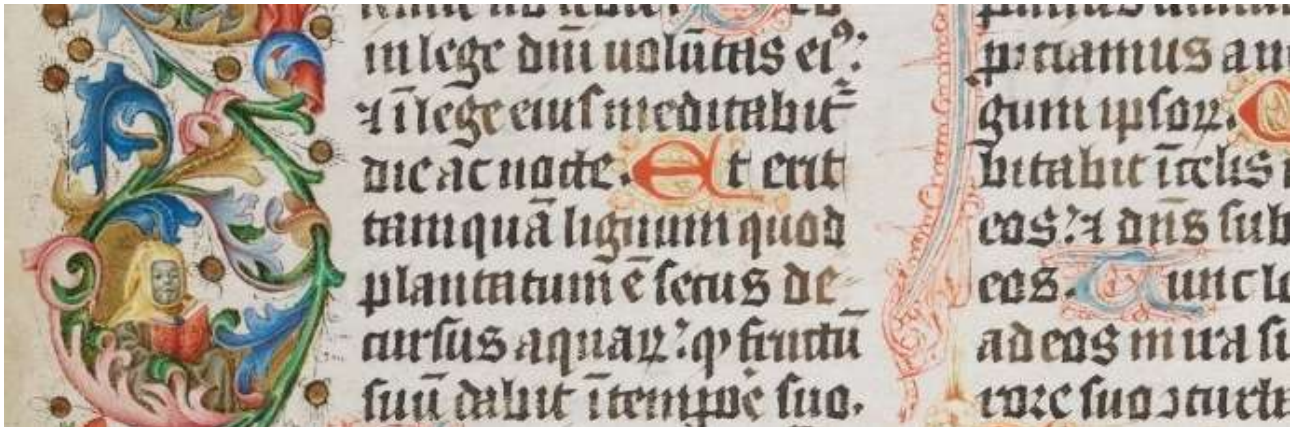 in lege dñi uolũtas ei⁹:
⁊ ĩ lege eius meditabit᷑
die ac nocte. Et erit
tamquã lignum quod
plantatum ẽ secus de
cursus aquaꝝ: ꝙ fructũ
suũ dabit ĩ tempoꝛe suo.
gum ipsoꝝ.
bitabit ĩ celis
eos: ⁊ dñs sub
eos. Tunc lo
ad eos in ira su